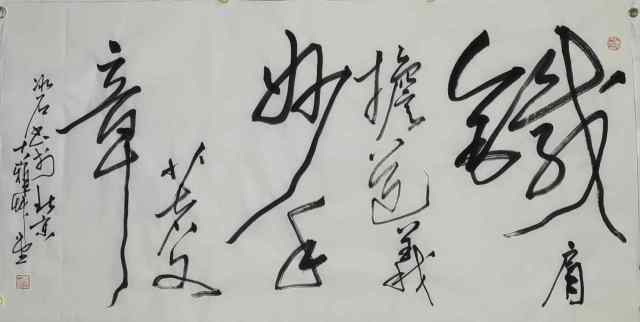 鐵肩
擔道義
妙手
著文
章
冰石书於北京